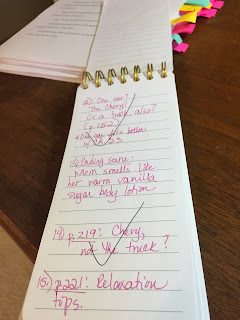 12) One car?
The Chevy.
Or a truck, also?
(p. 152)
by Ch. 23.
13) Ending scene:
Mom smells like
her warm vanilla
sugar body lotion
14) p. 219: Chevy,
not the truck?
15.) p. 221: Relaxation
tips.